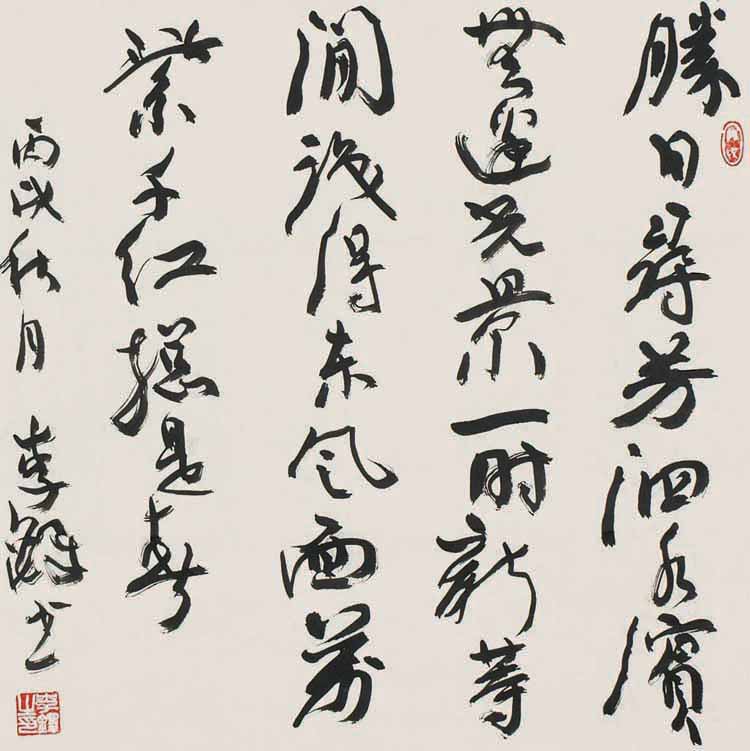 勝日尋芳泗水濱
無邊光景一時新等
閒識得東風面萬
紫千紅總是春
丙戌秋月 李 書